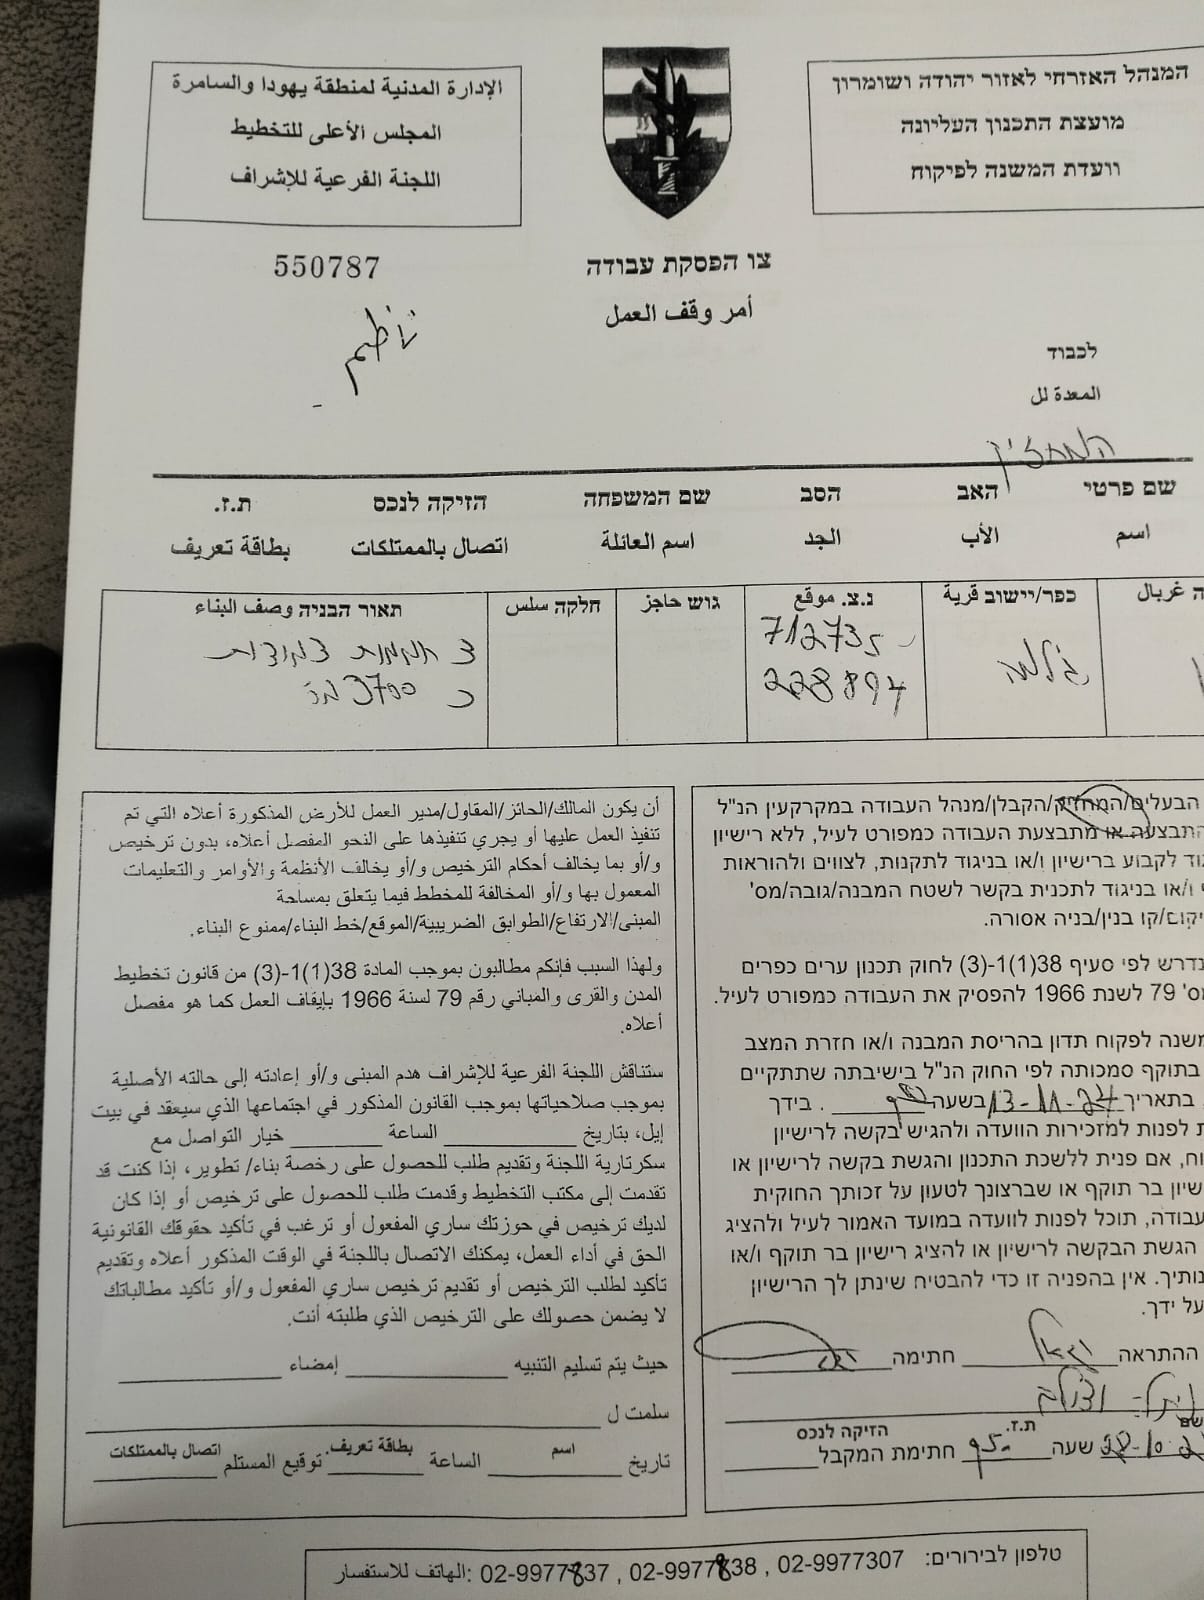 המנהל האזרחי לאזור יהודה ושומרון
מועצת התכנון העליונה
וועדת המשנה לפיקוח
الإدارة المدنية لمنطقة يهودا والسامرة
المجلس الأعلى للتخطيط
اللجنة الفرعية للإشراف
550787
צו הפסקת עבודה
أمر وقف العمل
ناظم
לכבוד
المعدة لل
המחזיק
שם פרטי האב הסב שם המשפחה הזיקה לנכס ת.ז.
اسم الأب الجد اسم العائلة اتصال بالممتلكات بطاقة تعريف
ה غربال כפר/יישוב قرية נ.צ. موقع גוש حاجز חלקה سلس תאור הבניה وصف البناء
ג'למה
712735
228894
כ 3700 מ"ר
הבעלים/המחזיק/הקבלן/מנהל העבודה במקרקעין הנ"ל
התבצעה או מתבצעת העבודה כמפורט לעיל, ללא רישיון
וד לקבוע ברישיון ו/או בניגוד לתקנות, לצווים ולהוראות
ו/או בניגוד לתכנית בקשר לשטח המבנה/גובה/מס'
יקום/קו בנין/בניה אסורה.
נדרש לפי סעיף 38(1)-(3) לחוק תכנון ערים כפרים
מס' 79 לשנת 1966 להפסיק את העבודה כמפורט לעיל.
משנה לפקוח תדון בהריסת המבנה ו/או חזרת המצב
בתוקף סמכותה לפי החוק הנ"ל בישיבתה שתתקיים
בתאריך 13-11-24 בשעה . בידך
ת לפנות למזכירות הוועדה ולהגיש בקשה לרישיון
וח, אם פנית ללשכת התכנון והגשת בקשה לרישיון או
שיון בר תוקף או שברצונך לטעון על זכותך החוקית
עבודה, תוכל לפנות לוועדה במועד האמור לעיל ולהציג
הגשת הבקשה לרישיון או להציג רישיון בר תוקף ו/או
נותיך. אין בהפניה זו כדי להבטיח שינתן לך הרישיון
על ידך.
ההתראה חתימה
שם ת.ז. הזיקה לנכס
28-10-2 שעה חתימת המקבל
أن يكون المالك/الحائز/المقاول/مدير العمل للأرض المذكورة أعلاه التي تم
تنفيذ العمل عليها أو يجري تنفيذها على النحو المفصل أعلاه، بدون ترخيص
و/أو بما يخالف أحكام الترخيص و/أو يخالف الأنظمة والأوامر والتعليمات
المعمول بها و/أو المخالفة للمخطط فيما يتعلق بمساحة
المبنى/الارتفاع/الطوابق الضريبية/الموقع/خط البناء/ممنوع البناء.
ولهذا السبب فإنكم مطالبون بموجب المادة 38(1)-(3) من قانون تخطيط
المدن والقرى والمباني رقم 79 لسنة 1966 بإيقاف العمل كما هو مفصل
أعلاه.
ستناقش اللجنة الفرعية للإشراف هدم المبنى و/أو إعادته إلى حالته الأصلية
بموجب صلاحياتها بموجب القانون المذكور في اجتماعها الذي سيعقد في بيت
إيل، بتاريخ الساعة خيار التواصل مع
سكرتارية اللجنة وتقديم طلب للحصول على رخصة بناء/ تطوير، إذا كنت قد
تقدمت إلى مكتب التخطيط وقدمت طلب للحصول على ترخيص أو إذا كان
لديك ترخيص في حوزتك ساري المفعول أو ترغب في تأكيد حقوقك القانونية
الحق في أداء العمل، يمكنك الاتصال باللجنة في الوقت المذكور أعلاه وتقديم
تأكيد لطلب الترخيص أو تقديم ترخيص ساري المفعول و/أو تأكيد مطالباتك
لا يضمن حصولك على الترخيص الذي طلبته أنت.
حيث يتم تسليم التنبيه إمضاء
سلمت ل
اسم بطاقة تعريف. اتصال بالممتلكات
تاريخ الساعة توقيع المستلم
טלפון לבירורים: 02-9977307 , 02-9977838 , 02-9977837 :الهاتف للاستفسار